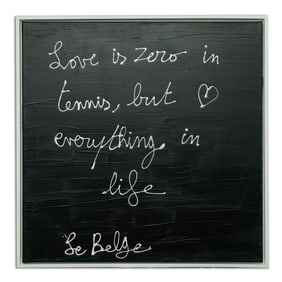 Love is zero in
tennis, but ♡
everything, in
life
Le Belge